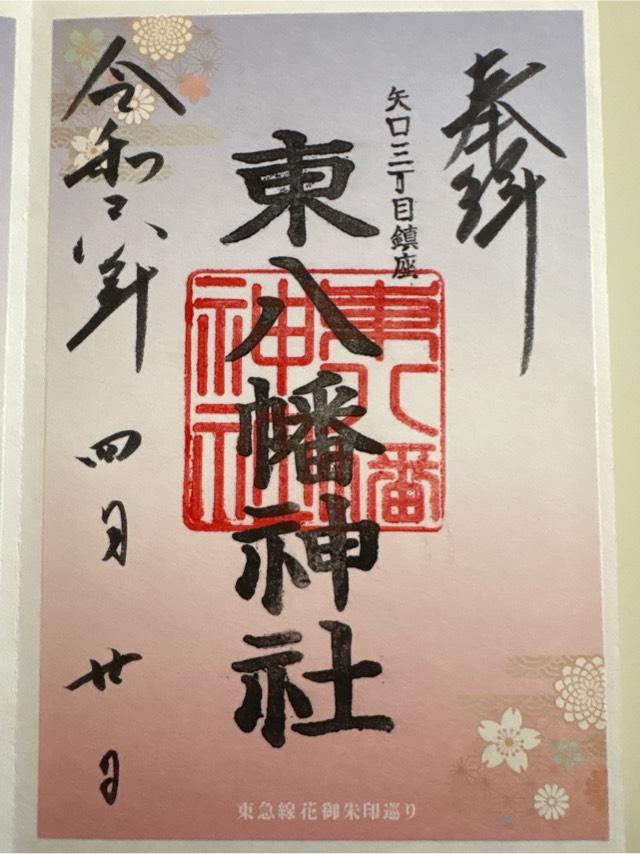 奉拝
矢口三丁目鎮座
東八幡神社
東八幡
神社
令和六年 四月 廿日
東急線花御朱印巡り